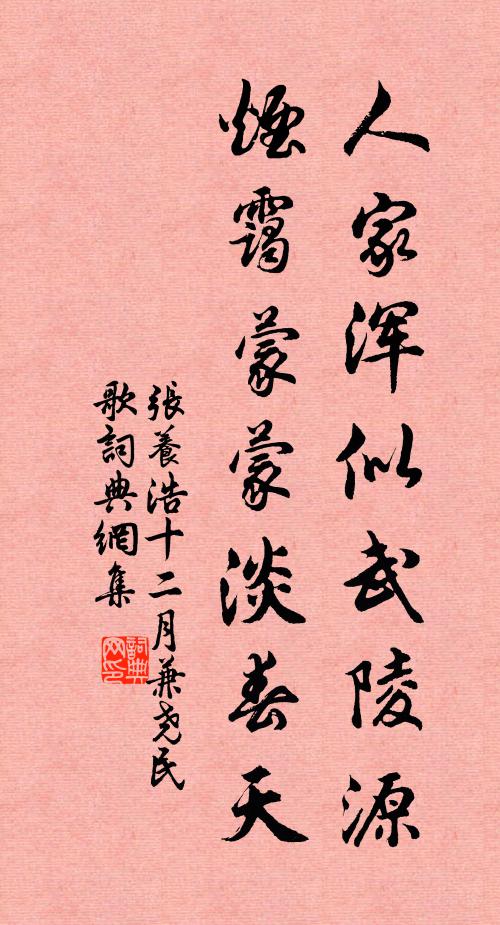 人家浑似武陵源
煙靄蒙蒙淡春天
張養浩十二月兼尧民
歌詞典網集
詞典网印